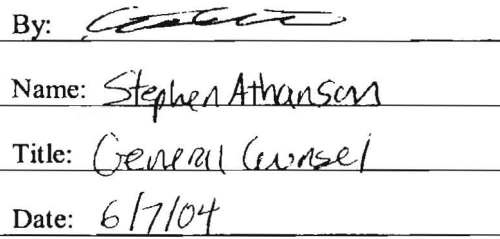 By:
Name: Stephen Athanson
Title: General Counsel
Date: 6/7/04